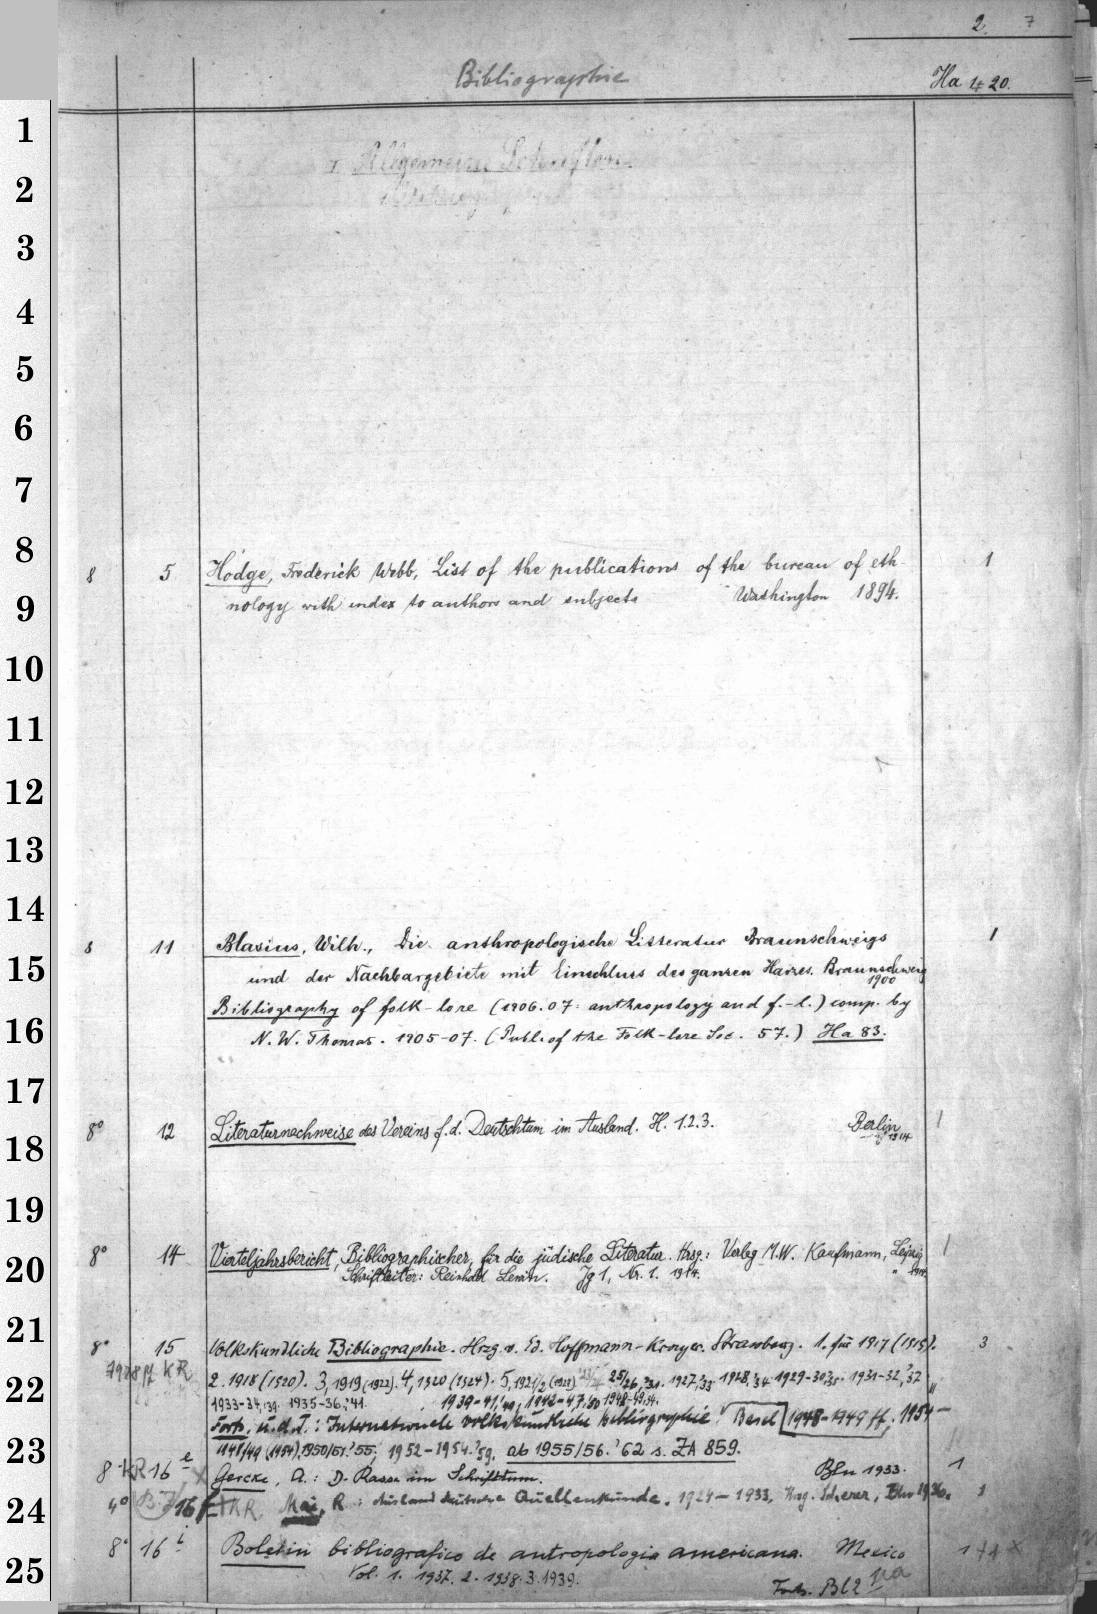 2. 7
Bibliographie Ha 1-20.
8 5 Hodge, Frederick Webb, List of the publications of the bureau of eth- 1
nology with index to authors and subjects Washington 1894.
8 11 Blasius, Wilh., Die anthropologische Litteratur Braunschweigs 1
und der Nachbargebiete mit Einschluss des ganzen Harzes. Braunschweig
1900
Bibliography of folk-lore (1906.07: anthropology and f.-l.) comp. by
N. W. Thomas. 1905-07. (Publ. of the Folk-lore Soc. 57.) Ha 83.
8° 12 Literaturnachweise des Vereins f. d. Deutschtum im Ausland. H. 1.2.3. Berlin 1
1914
8° 14 Vierteljahrsbericht, Bibliographischer, für die jüdische Literatur. Hrsg.: Verlag M.W. Kaufmann, Leipzig 1
Schriftleiter: Reinhold Lewin. Jg 1, Nr. 1. 1914. " 1914.
8° 15 Volkskundliche Bibliographie. Hrzg. v. Ed. Hoffmann-Krayer. Strassburg. 1. für 1917 (1919). 3
2. 1918 (1920). 3, 1919 (1922). 4, 1920 (1924). 5, 1921/2 (1927) 25/26, '31. 1927, '33 1928, '34 1929-30, '35. 1931-32, '37
1933-34, '39. 1935-36, '41. 1939-41, '49, 1942-47, '50 1948-49, '54.
Forts. u. d. T.: Internationale volkskundliche Bibliographie. Basel 1948-1949 ff.
1948/49 (1954), 1950/51. '55, 1952-1954. '59. ab 1955/56. '62 s. ZA 859.
8 KR 16 e Gercke, A.: D. Rasse im Schrifttum. Bln 1933. 1
4° 16 f KR Mai, R.: Auslanddeutsche Quellenkunde. 1924-1933, Hrsg. Scherer, Bln 1936. 1
8° 16 i Boletin bibliografico de antropologia americana. Mexico 1
Vol. 1. 1937. 2. 1938. 3. 1939.
Forts. Bl 2
1
2
3
4
5
6
7
8
9
10
11
12
13
14
15
16
17
18
19
20
21
22
23
24
25